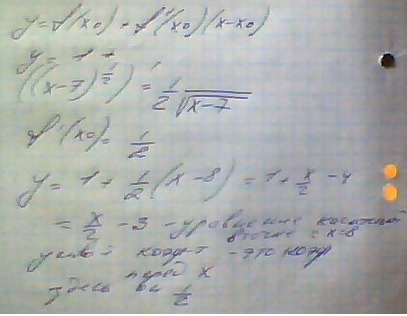 y = f(x₀) + f'(x₀)(x-x₀)
y = 1 +
((x-7)^½)' = 1/(2√(x-7))
f'(x₀) = 1/2
y = 1 + 1/2 (x-8) = 1 + x/2 - 4
= x/2 - 3 - уравнение касательной
в точке с x=8
углов коэф-т - это коэф
перед x
здесь он 1/2